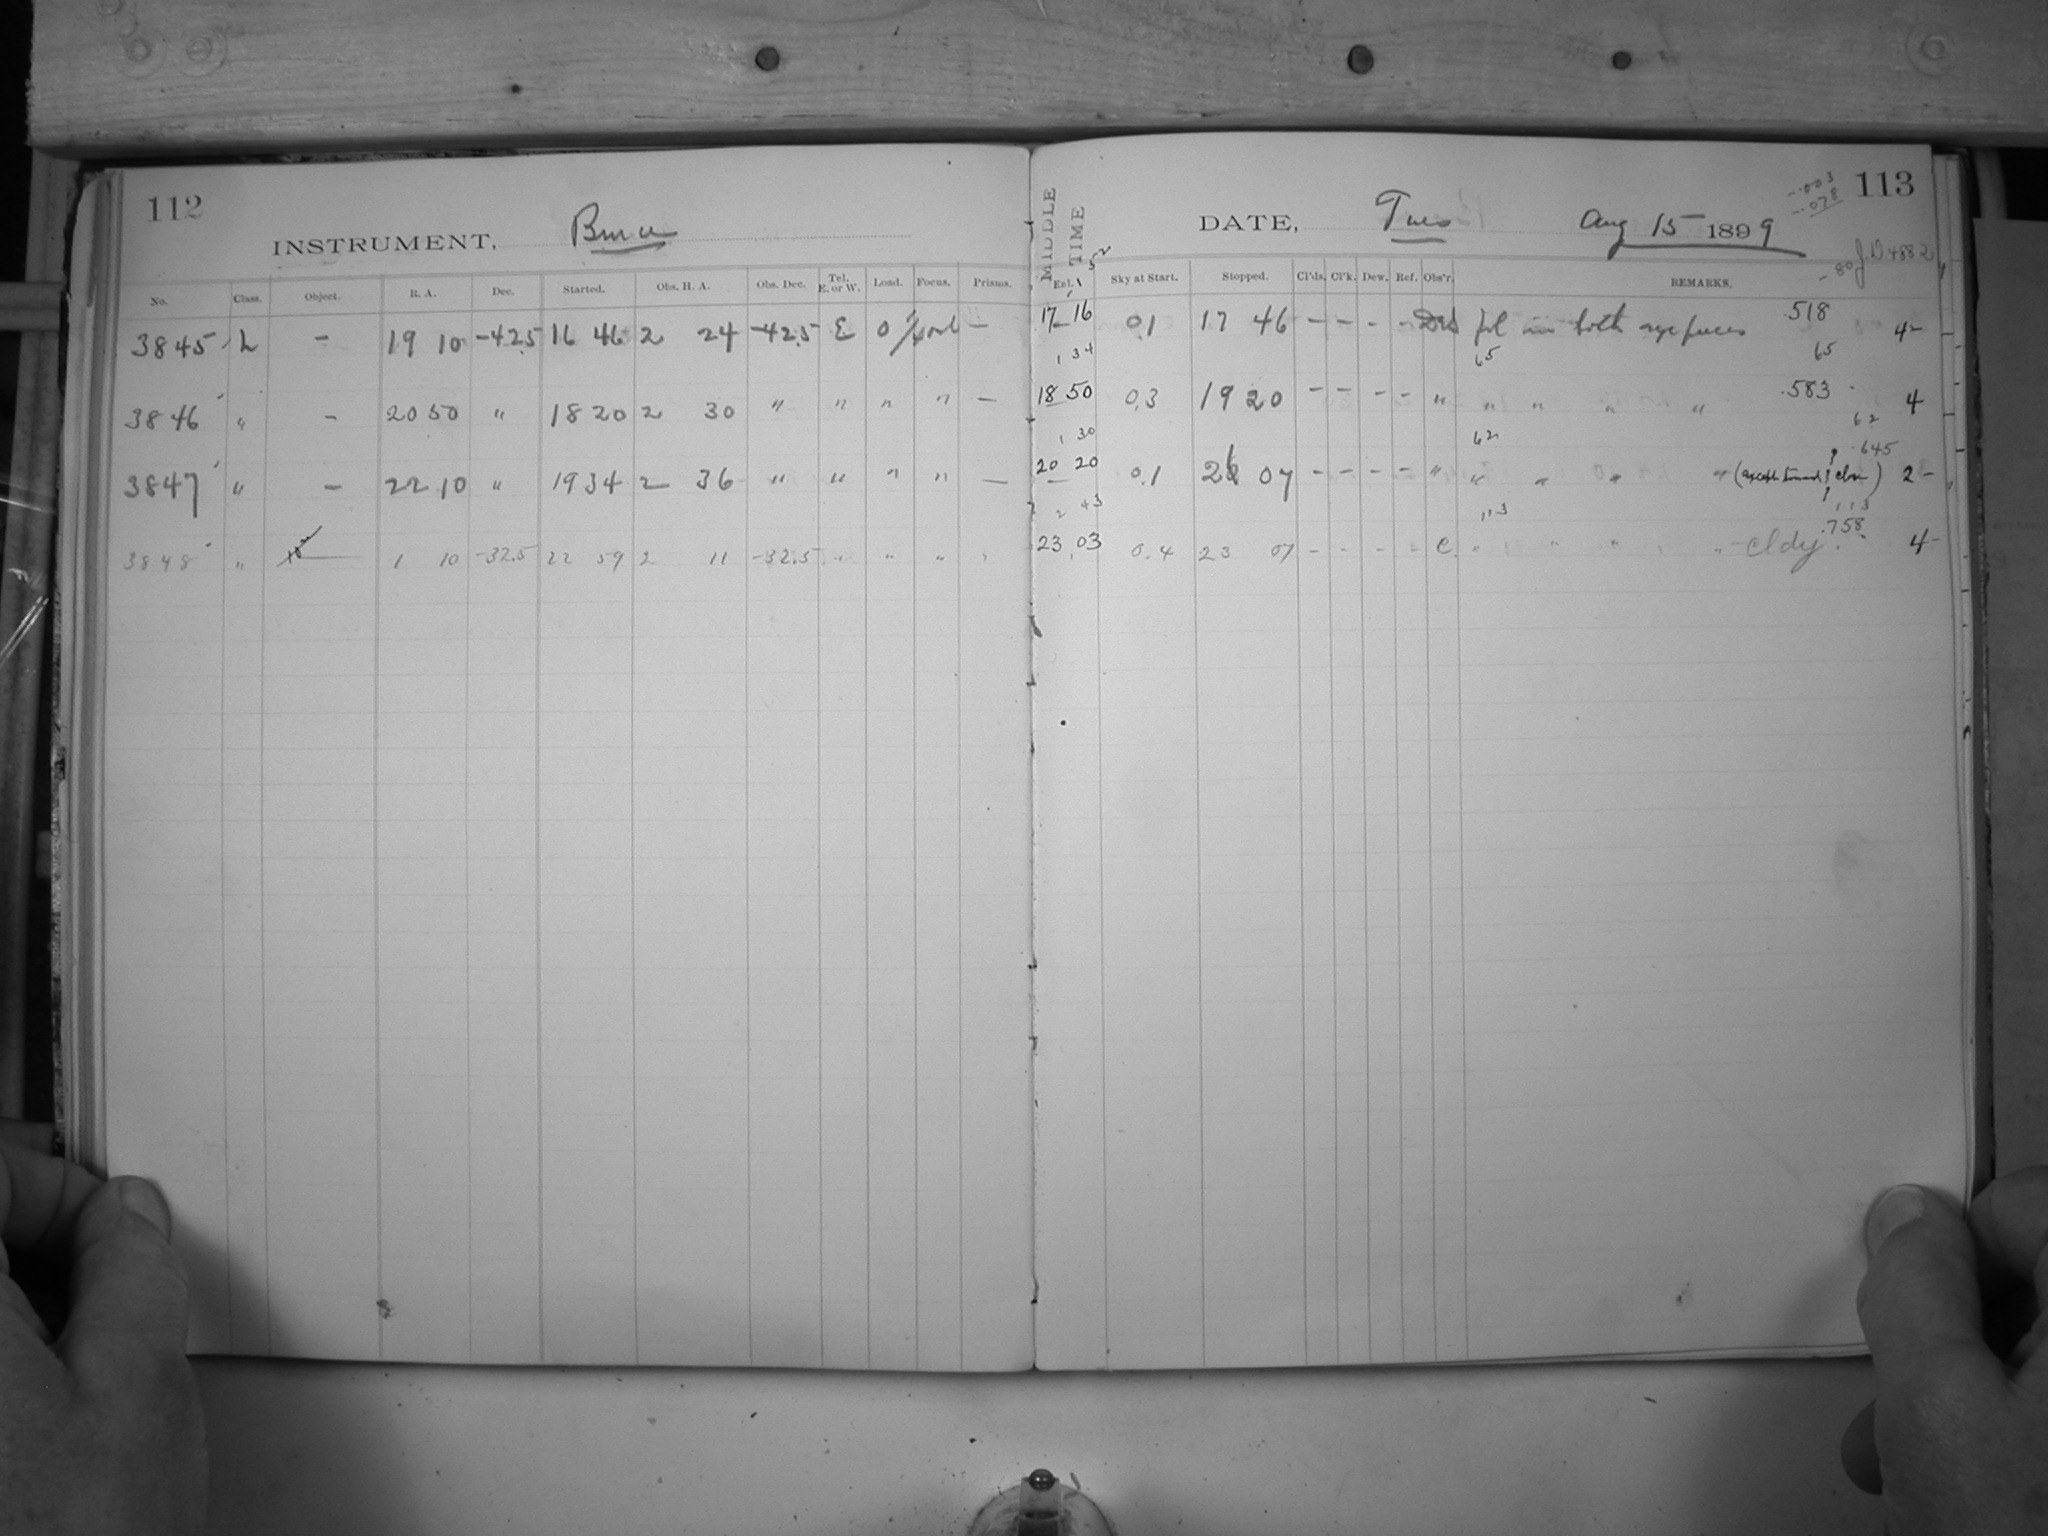 112
INSTRUMENT, Bruce
No. Class. Object. R. A. Dec. Started. Obs. H. A. Obs. Dec. Tel. E. or W. Load. Focus. Prisms.
3845 L - 19 10 -42.5 16 46 2 24 -42.5 E 0 -
3846 " - 20 50 " 18 20 2 30 " " " " -
3847 " - 22 10 " 19 34 2 36 " " " " -
3848 " 1 10 -32.5 22 59 2 11 -32.5 " " "
113
-.003
-.078
MIDDLE TIME
DATE, Tues Aug 15 1899
J.D. 4882
-80
52
Exl. Sky at Start. Stopped. Cl'ds. Cl'k. Dew. Ref. Obs'r. REMARKS.
17 16 0.1 17 46 - - - - fol in both .518 4-
1 34 65 65
18 50 0.3 19 20 - - - - " " " " " .583 4
1 30 62 62
.645
20 20 0.1 07 - - - - " " " " " (except toward close) 2-
2 43 113 113
.758
23 03 0.4 23 07 - - - - C. " " " " Cldy. 4-